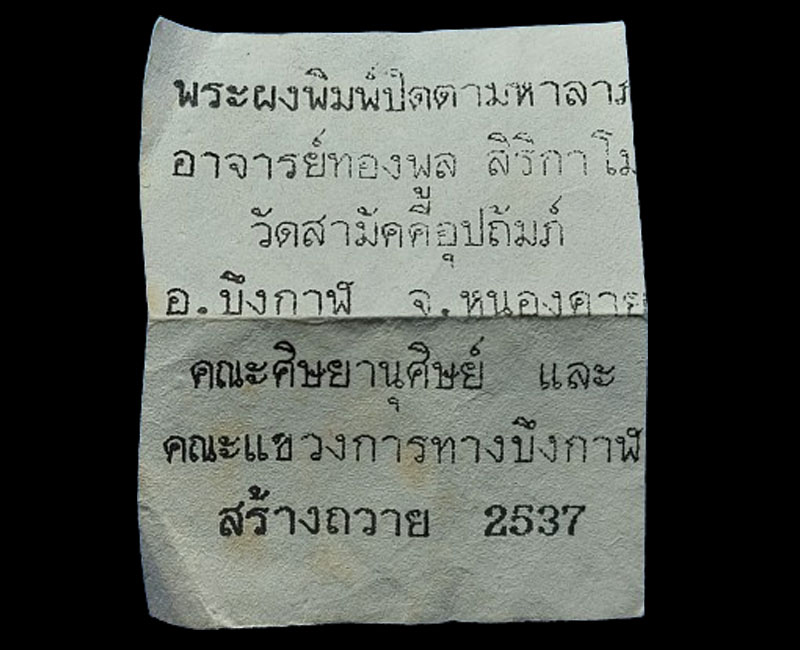 พระผงพิมพ์ปิดตามหาลาภ
อาจารย์ทองพูล สิริกาโม
วัดสามัคคีอุปถัมภ์
อ.บึงกาฬ จ.หนองคาย
คณะศิษยานุศิษย์ และ
คณะแขวงการทางบึงกาฬ
สร้างถวาย 2537